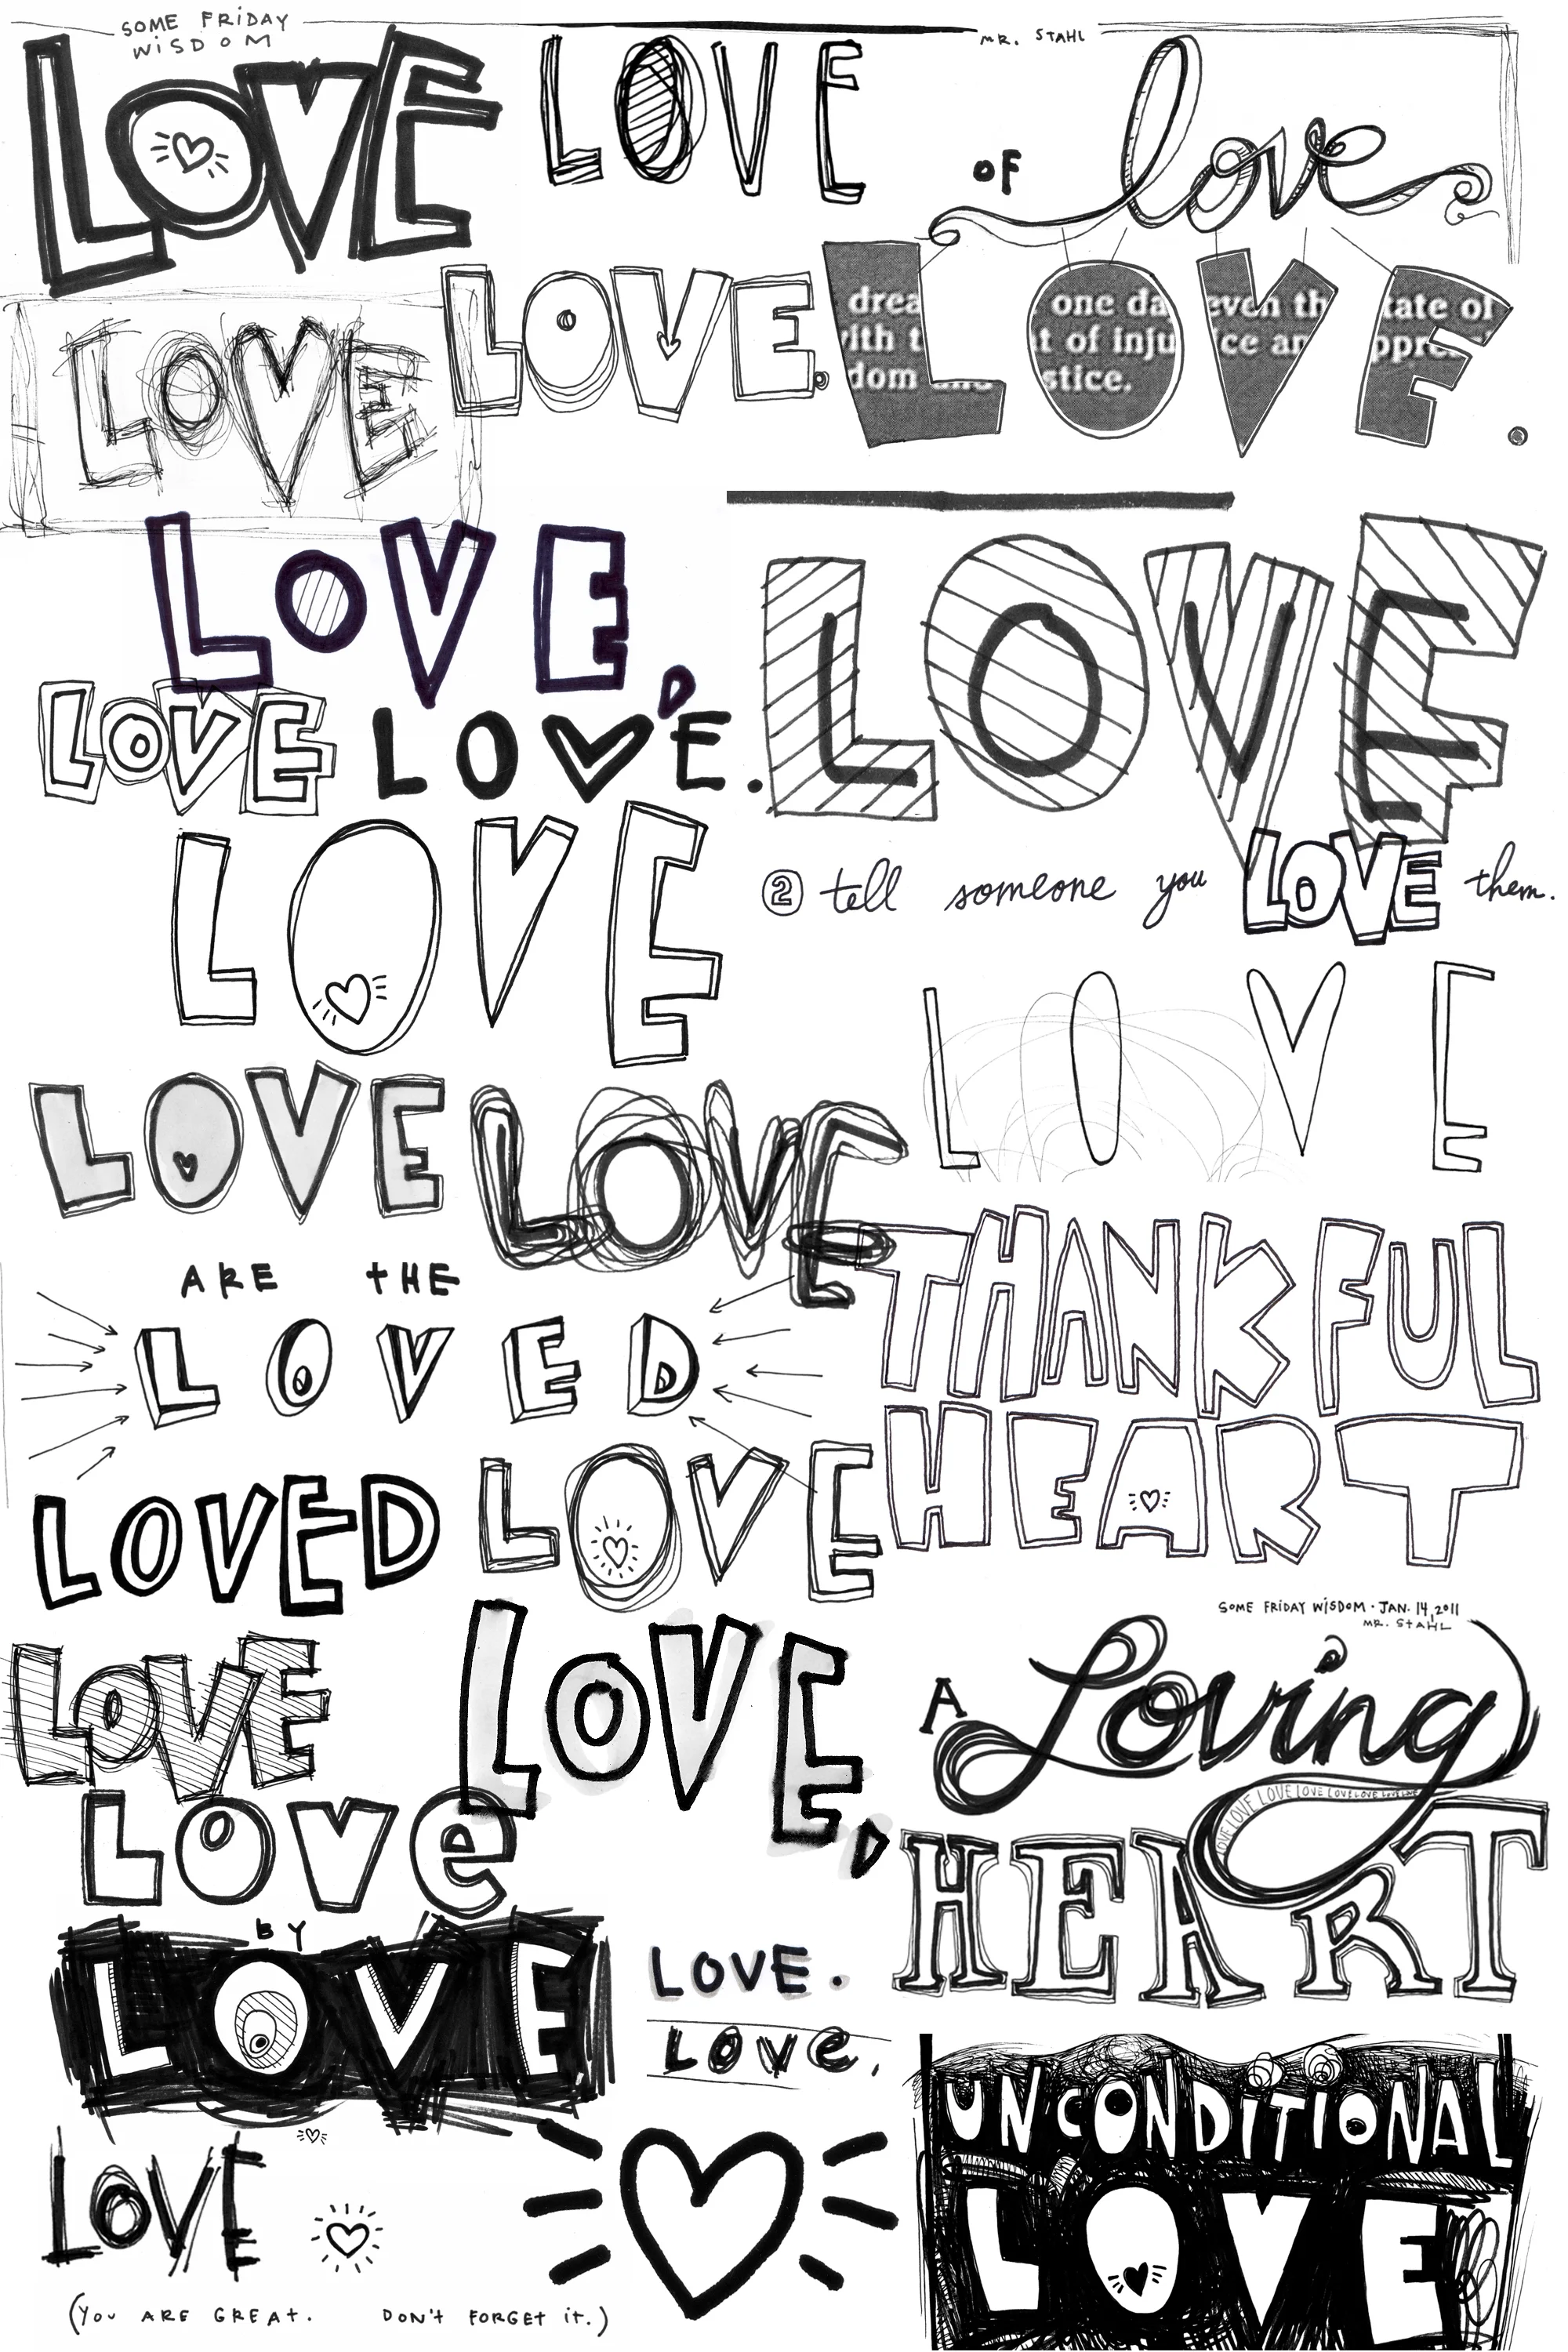 SOME FRIDAY
WISDOM
MR. STAHL
LOVE
LOVE
OF love
LOVE
LOVE.
drea one da even th tate of
with t t of inju ice an ppre
dom and stice.
LOVE.
LOVE,
LOVE
LOVE
LOVE.
LOVE
② tell someone you LOVE them.
LOVE
LOVE
LOVE
LOVE
ARE THE
LOVED
THANKFUL
HEART
LOVED
LOVE
SOME FRIDAY WISDOM · JAN. 14, 2011
MR. STAHL
A Loving
LOVE LOVE LOVE LOVE LOVE LOVE LOVE
HEART
LOVE
LOVE,
Love
BY
LOVE
LOVE.
Love.
UNCONDITIONAL
LOVE
LOVE
(YOU ARE GREAT. DON'T FORGET IT.)